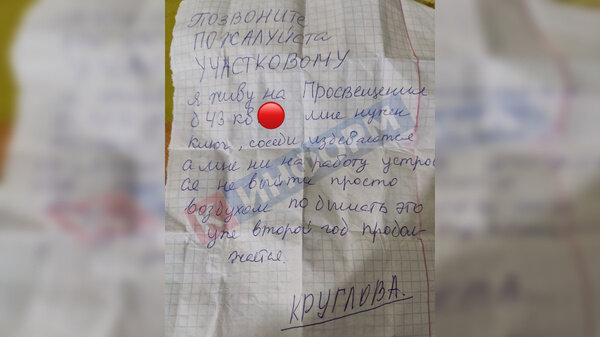 ПОЗВОНИТЕ
ПОЖАЛУЙСТА
УЧАСТКОВОМУ
я живу на Просвещения
д 43 кв мне нужен
ключ, соседи избеваются
а мне ни на работу устрои
ся не выйти просто
воздухом подышать это
уже второй год продол-
жается.
КРУГЛОВА.